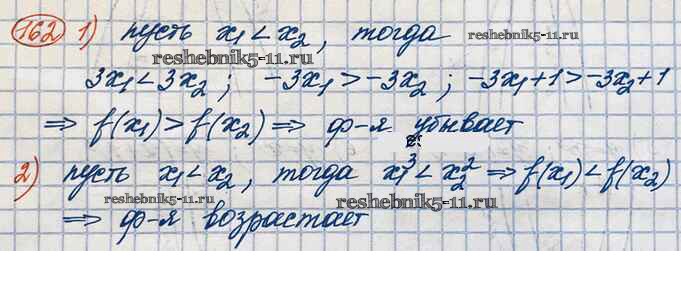 162 1) пусть x₁ < x₂, тогда
reshebnik5-11.ru
reshebnik5-11.ru
3x₁ < 3x₂; -3x₁ > -3x₂; -3x₁+1 > -3x₂+1
⇒ f(x₁) > f(x₂) ⇒ ф-я убывает
2) пусть x₁ < x₂, тогда x₁³ < x₂² ⇒ f(x₁) < f(x₂)
reshebnik5-11.ru
reshebnik5-11.ru
⇒ ф-я возрастает